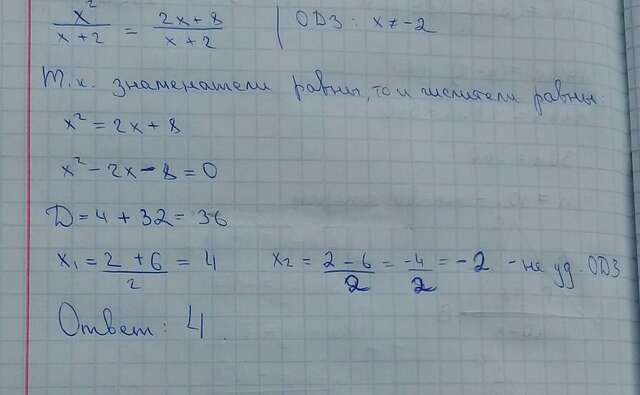 x²/(x+2) = (2x+8)/(x+2) | ОДЗ: x≠-2
Т.к. знаменатели равны, то и числители равны:
x² = 2x+8
x² - 2x - 8 = 0
D = 4 + 32 = 36
x₁ = (2+6)/2 = 4 x₂ = (2-6)/2 = -4/2 = -2 - не уд. ОДЗ
Ответ: 4.